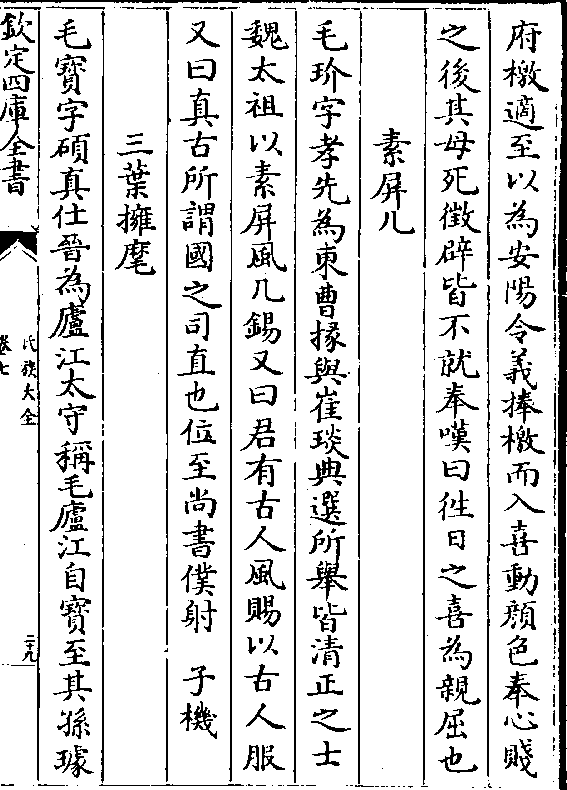 府檄適至以為安陽令義捧檄而入喜動顔色奉心賤
之後其母死徴辟皆不就奉嘆曰徃日之喜為親屈也
素屏几
毛玠字孝先為東曹掾與崔琰典選所舉皆清正之士
魏太祖以素屏風几錫又曰君有古人風賜以古人服
又曰真古所謂國之司直也位至尚書僕射　子機
三葉擁麾
毛寶字碩真仕晉為廬江太守稱毛廬江自寶至其孫璩
欽定四庫全書
氏族大全
卷七
二十九